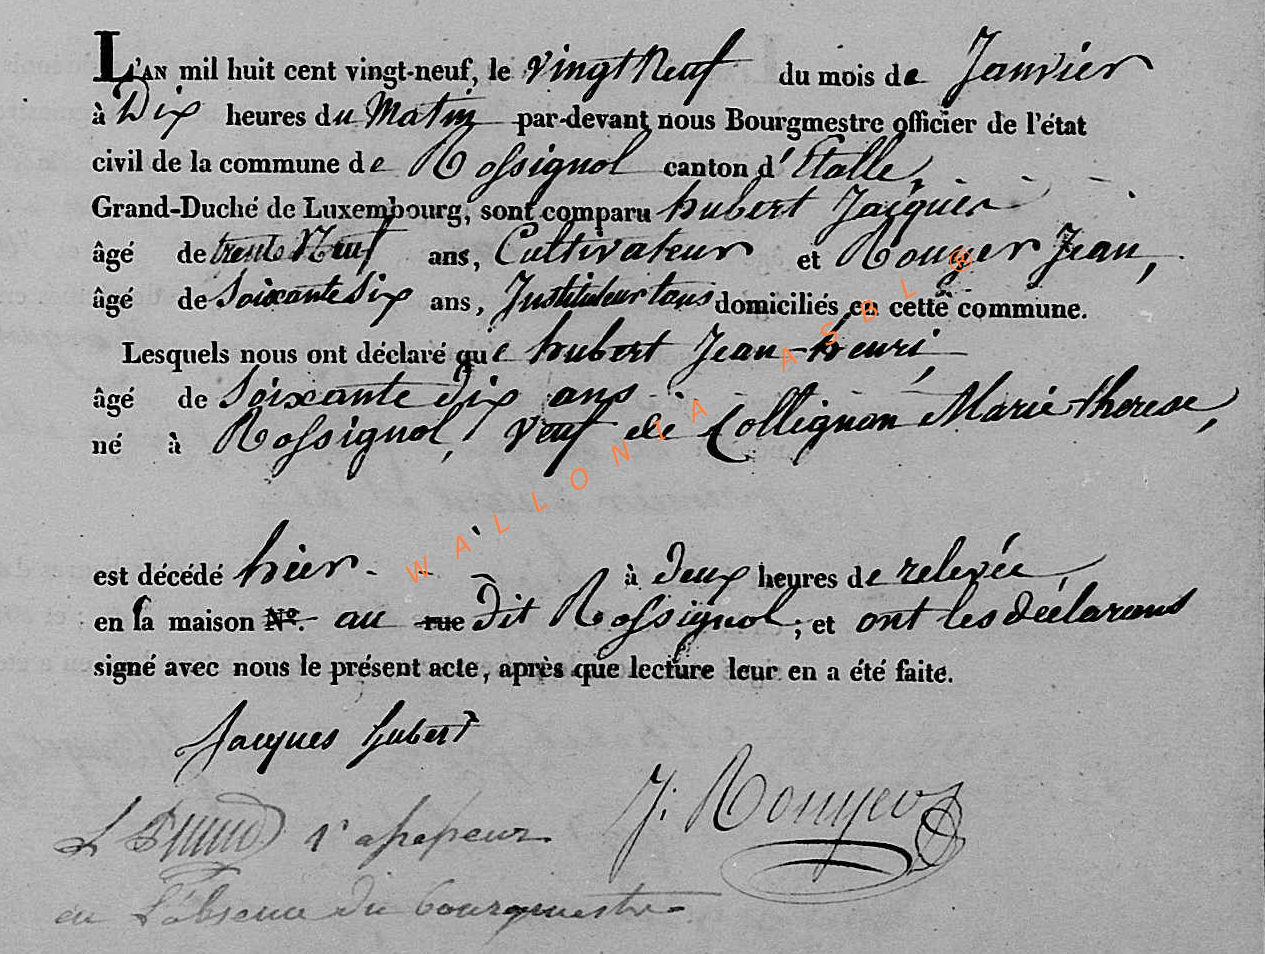 L'AN mil huit cent vingt-neuf, le vingt Neuf du mois de Janvier
à Dix heures du Matin par-devant nous Bourgmestre officier de l'état
civil de la commune de Rossignol canton d'Etalle,
Grand-Duché de Luxembourg, sont comparu hubert Jacques
âgé de trente Neuf ans, Cultivateur et Rouyer Jean,
âgé de Soixante Six ans, Instituteur tous domiciliés en cette commune.
Lesquels nous ont déclaré que hubert Jean-henri,
âgé de Soixante dix ans
né à Rossignol, veuf de Collignon Marie-therese,
est décédé hier à deux heures de relevée,
en la maison N°. au rue Dit Rossignol; et ont les déclarans
signé avec nous le présent acte, après que lecture leur en a été faite.
Jacques hubert
J: Rouyer
L l'assesseur
en l'absence du bourgmestre
WALLONIA ASBL ®